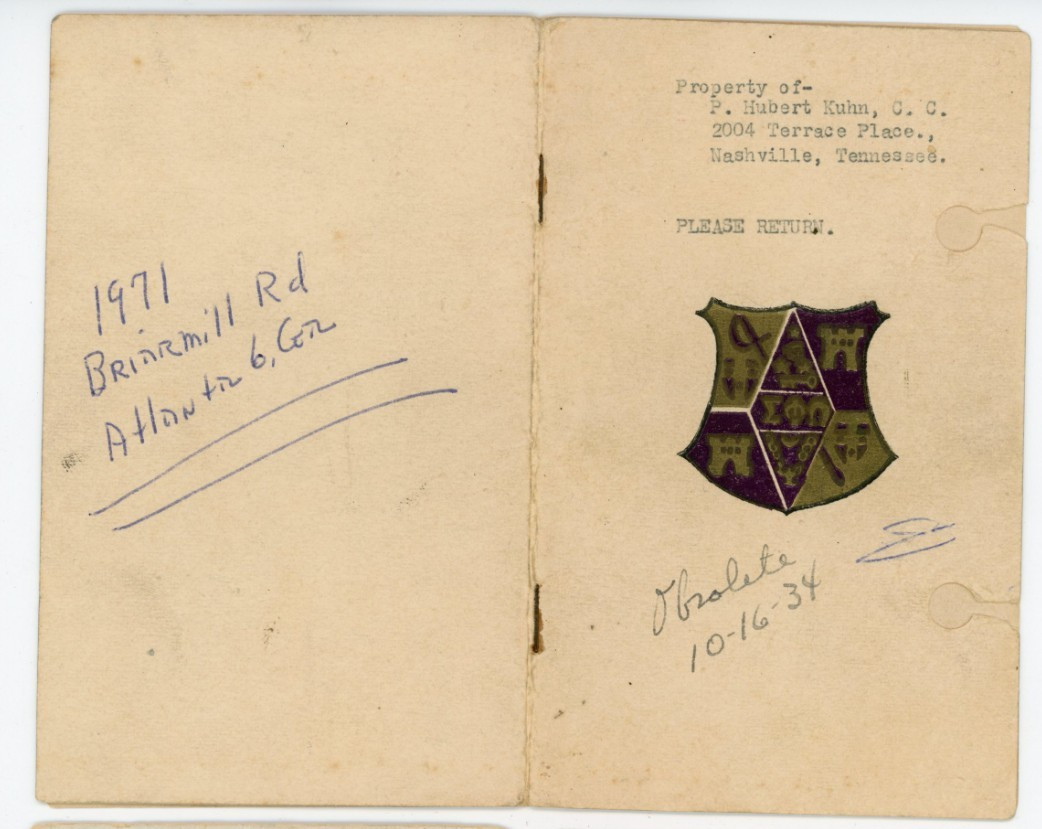 1971
Briarmill Rd
Atlanta 6, Ga
Property of-
P. Hubert Kuhn, C. C.
2004 Terrace Place.,
Nashville, Tennessee.
PLEASE RETURN.
ΣΦΩ
Obsolete
10-16-34